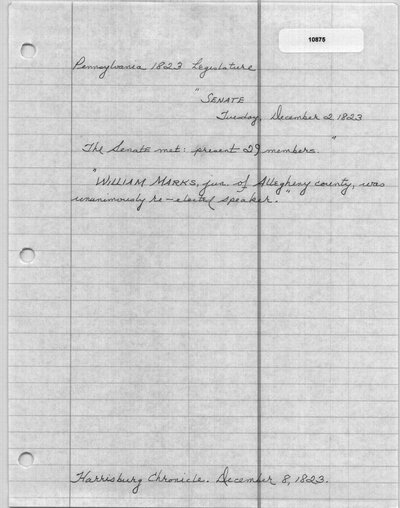 10875
Pennsylvania 1823 Legislature
"SENATE
Tuesday, December 2 1823
The Senate met: present 29 members. "
"WILLIAM MARKS, jun. of Allegheny county, was
unanimously re-elected speaker."
Harrisburg Chronicle. December 8, 1823.